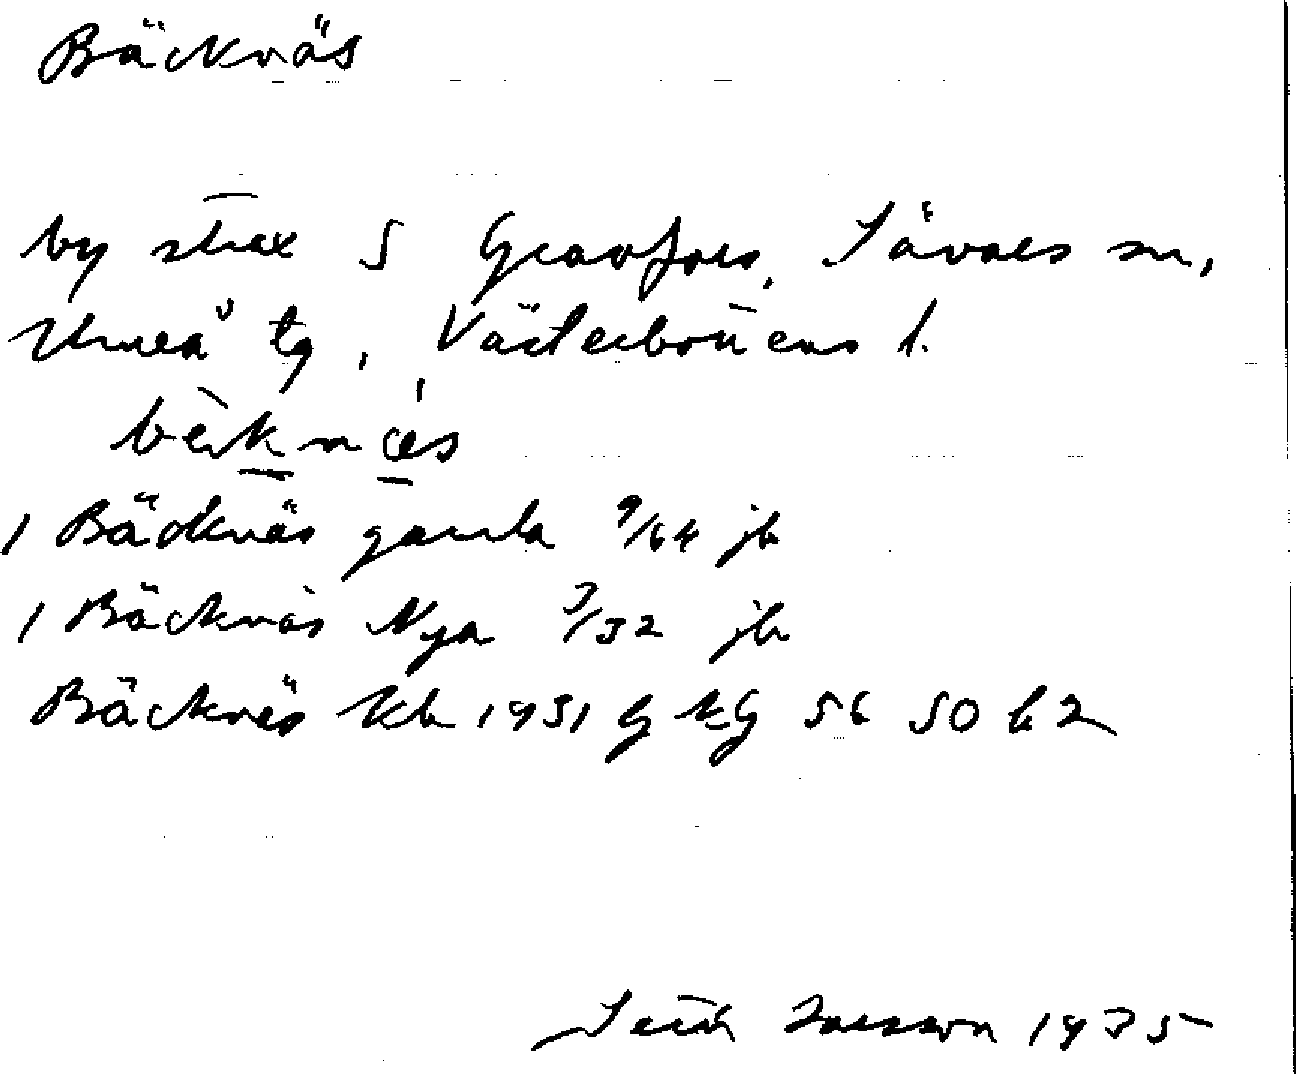 Bäcknäs
by strax S Gravfors, Sävars sn,
Umeå tg, Västerbottens l.
1 Bäcknäs gamla 9/64 jb
1 Bäcknäs Nya 3/32 jb
Bäcknäs Kb 1951 G kG 56 50 b 2
Larsson 1975